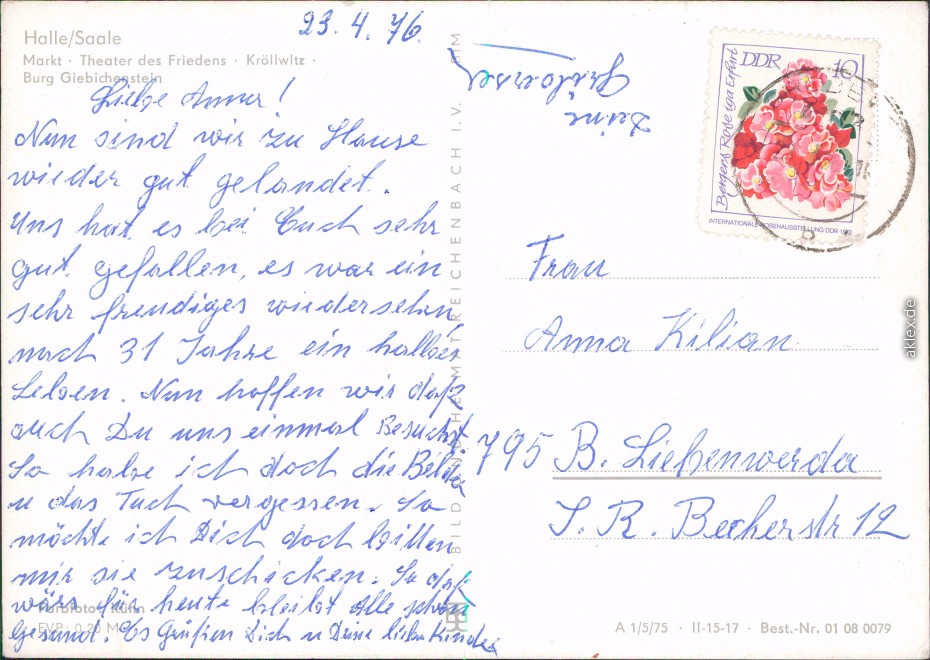 Halle/Saale
Markt · Theater des Friedens · Kröllwitz ·
Burg Giebichenstein
23.4.76.
Liebe Anna!
Nun sind wir zu Hause
wieder gut gelandet.
Uns hat es bei Euch sehr
gut gefallen, es war ein
sehr freudiges wiedersehn,
nach 31 Jahre ein halbes
Leben. Nun hoffen wir daß
auch Du uns einmal Besuchst.
So habe ich doch die Bilder
u das Tuch vergessen. So
möchte ich Dich doch bitten
mir sie zuschicken. So das
wärs für heute bleibt Alle schön
Gesund. Es Grüßen Dich u Deine lieben Kinder
Deine
BILD UND HEIMAT REICHENBACH I. V. BIM
Farbfoto: Kühn
EVP: 0,20 M
DDR 10
Bergers Rose iga Erfurt
INTERNATIONALE ROSENAUSSTELLUNG DDR 1972
Frau
Anna Kilian
795 B. Liebenwerda
J. R. Becherstr 12
A 1/5/75 · II-15-17 · Best.-Nr. 01 08 0079
aklex.de